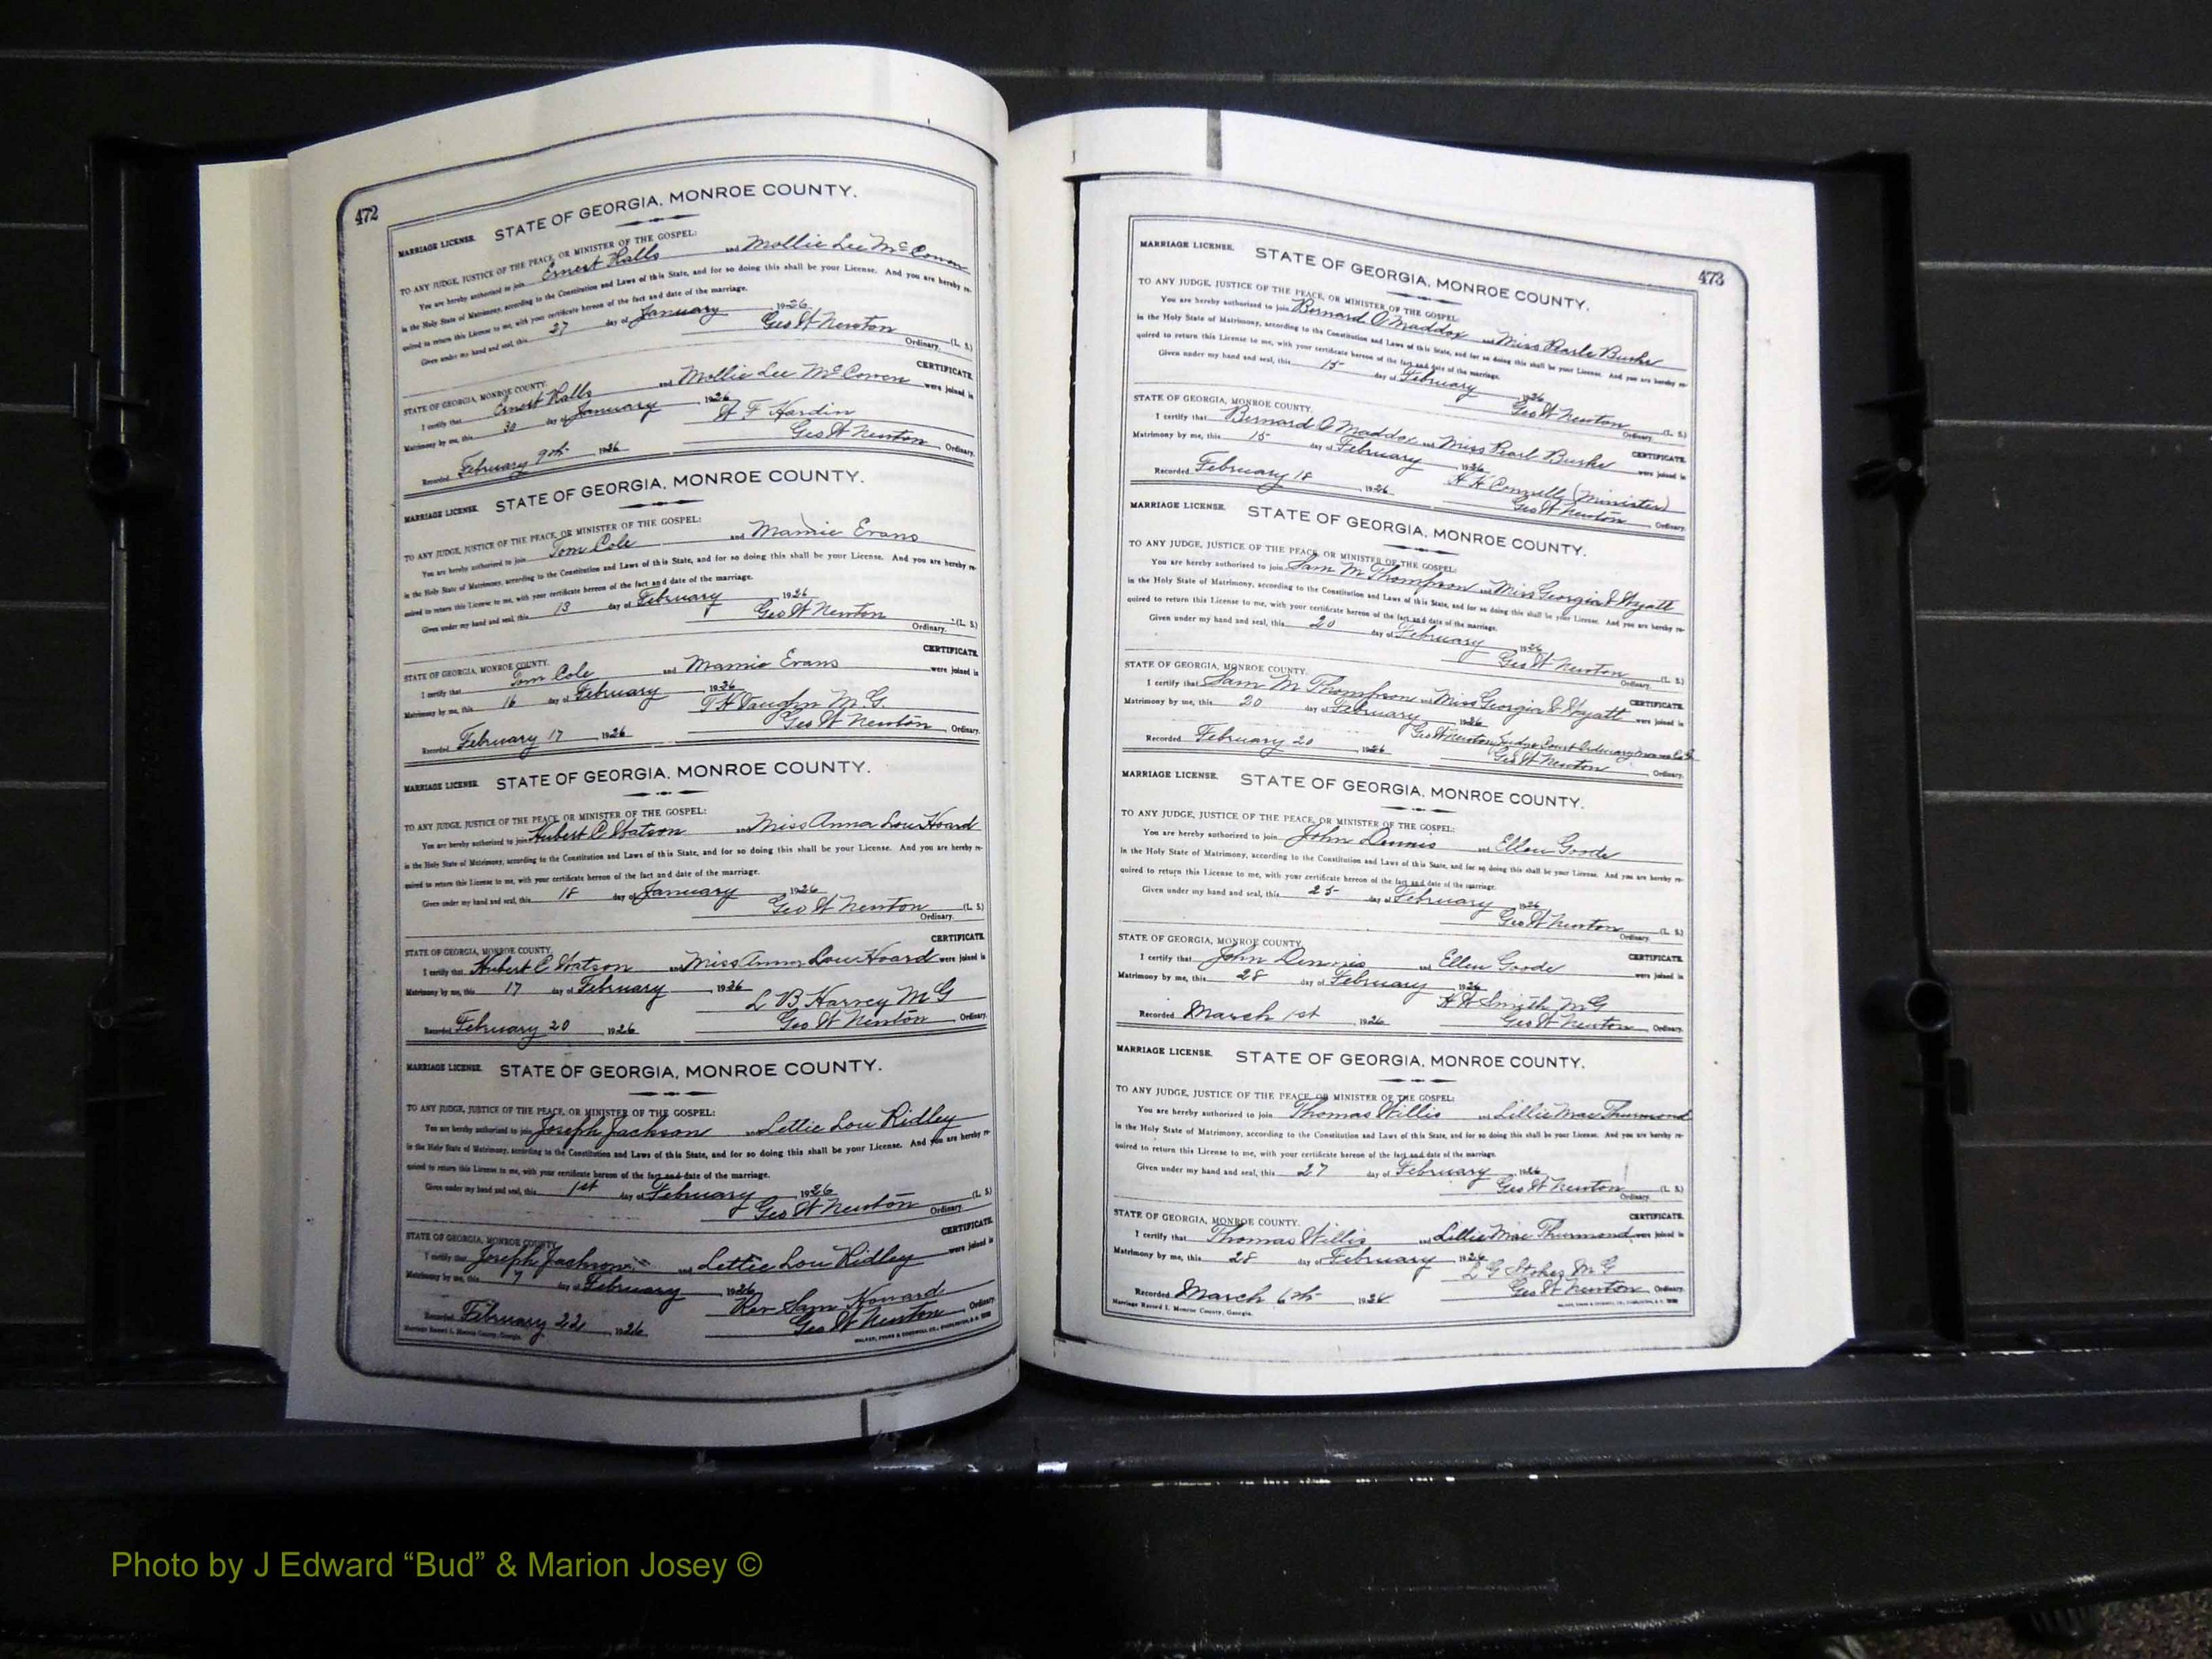 472
STATE OF GEORGIA, MONROE COUNTY.
MARRIAGE LICENSE.
TO ANY JUDGE, JUSTICE OF THE PEACE, OR MINISTER OF THE GOSPEL:
You are hereby authorized to join Ernest Ralls and Mollie Lee McCowen
in the Holy State of Matrimony, according to the Constitution and Laws of this State, and for so doing this shall be your License. And you are hereby re-
quired to return this License to me, with your certificate hereon of the fact and date of the marriage.
Given under my hand and seal, this 27 day of January 1926
Geo W Newton (L. S.)
Ordinary.
CERTIFICATE
STATE OF GEORGIA, MONROE COUNTY.
I certify that Ernest Ralls and Mollie Lee McCowen were joined in
Matrimony by me, this 30 day of January, 1926
F Hardin
Recorded February 9th 1926 Geo W Newton, Ordinary.
MARRIAGE LICENSE. STATE OF GEORGIA, MONROE COUNTY.
TO ANY JUDGE, JUSTICE OF THE PEACE, OR MINISTER OF THE GOSPEL:
You are hereby authorized to join Tom Cole and Mamie Evans
in the Holy State of Matrimony, according to the Constitution and Laws of this State, and for so doing this shall be your License. And you are hereby re-
quired to return this License to me, with your certificate hereon of the fact and date of the marriage.
Given under my hand and seal, this 13 day of February 1926
Geo W Newton (L. S.)
Ordinary.
CERTIFICATE
STATE OF GEORGIA, MONROE COUNTY.
I certify that Tom Cole and Mamie Evans were joined in
Matrimony by me, this 16 day of February, 1926
T H Vaughn M.G.
Recorded February 17, 1926 Geo W Newton, Ordinary.
MARRIAGE LICENSE. STATE OF GEORGIA, MONROE COUNTY.
TO ANY JUDGE, JUSTICE OF THE PEACE, OR MINISTER OF THE GOSPEL:
You are hereby authorized to join Hubert C Watson and Miss Anna Lou Hoard
in the Holy State of Matrimony, according to the Constitution and Laws of this State, and for so doing this shall be your License. And you are hereby re-
quired to return this License to me, with your certificate hereon of the fact and date of the marriage.
Given under my hand and seal, this 18 day of January, 1926
Geo W Newton (L. S.)
Ordinary.
CERTIFICATE
STATE OF GEORGIA, MONROE COUNTY.
I certify that Hubert C Watson and Miss Anna Lou Hoard were joined in
Matrimony by me, this 17 day of February, 1926
L B Harvey M G
Recorded February 20, 1926 Geo W Newton, Ordinary.
MARRIAGE LICENSE. STATE OF GEORGIA, MONROE COUNTY.
TO ANY JUDGE, JUSTICE OF THE PEACE, OR MINISTER OF THE GOSPEL:
You are hereby authorized to join Joseph Jackson and Lettie Lou Ridley
in the Holy State of Matrimony, according to the Constitution and Laws of this State, and for so doing this shall be your License. And you are hereby re-
quired to return this License to me, with your certificate hereon of the fact and date of the marriage.
Given under my hand and seal, this 1st day of February, 1926
Geo W Newton (L. S.)
Ordinary.
CERTIFICATE
STATE OF GEORGIA, MONROE COUNTY.
I certify that Joseph Jackson and Lettie Lou Ridley were joined in
Matrimony by me, this 7 day of February, 1926
Rev Sam Howard
Recorded February 22, 1926 Geo W Newton, Ordinary.
Marriage Record I. Monroe County, Georgia.
473
MARRIAGE LICENSE. STATE OF GEORGIA, MONROE COUNTY.
TO ANY JUDGE, JUSTICE OF THE PEACE, OR MINISTER OF THE GOSPEL:
You are hereby authorized to join Bernard O Maddox and Miss Pearle Burke
in the Holy State of Matrimony, according to the Constitution and Laws of this State, and for so doing this shall be your License. And you are hereby re-
quired to return this License to me, with your certificate hereon of the fact and date of the marriage.
Given under my hand and seal, this 15 day of February 1926
Geo W Newton (L. S.)
Ordinary.
STATE OF GEORGIA, MONROE COUNTY.
CERTIFICATE
I certify that Bernard O Maddox and Miss Pearl Burke were joined in
Matrimony by me, this 15 day of February, 1926
(Minister)
Recorded February 18, 1926 Geo W Newton, Ordinary.
MARRIAGE LICENSE. STATE OF GEORGIA, MONROE COUNTY.
TO ANY JUDGE, JUSTICE OF THE PEACE, OR MINISTER OF THE GOSPEL:
You are hereby authorized to join Sam M Thompson and Miss Georgia Wyatt
in the Holy State of Matrimony, according to the Constitution and Laws of this State, and for so doing this shall be your License. And you are hereby re-
quired to return this License to me, with your certificate hereon of the fact and date of the marriage.
Given under my hand and seal, this 20 day of February 1926
Geo W Newton (L. S.)
Ordinary.
STATE OF GEORGIA, MONROE COUNTY.
CERTIFICATE
I certify that Sam M Thompson and Miss Georgia Wyatt were joined in
Matrimony by me, this 20 day of February, 1926
Geo W Newton Judge Court Ordinary Monroe Co Ga
Recorded February 20, 1926 Geo W Newton, Ordinary.
MARRIAGE LICENSE. STATE OF GEORGIA, MONROE COUNTY.
TO ANY JUDGE, JUSTICE OF THE PEACE, OR MINISTER OF THE GOSPEL:
You are hereby authorized to join John Dennis and Ellen Goode
in the Holy State of Matrimony, according to the Constitution and Laws of this State, and for so doing this shall be your License. And you are hereby re-
quired to return this License to me, with your certificate hereon of the fact and date of the marriage.
Given under my hand and seal, this 25 day of February 1926
Geo W Newton (L. S.)
Ordinary.
STATE OF GEORGIA, MONROE COUNTY.
CERTIFICATE
I certify that John Dennis and Ellen Goode were joined in
Matrimony by me, this 28 day of February, 1926
Smith M G
Recorded March 1st, 1926 Geo W Newton, Ordinary.
MARRIAGE LICENSE. STATE OF GEORGIA, MONROE COUNTY.
TO ANY JUDGE, JUSTICE OF THE PEACE, OR MINISTER OF THE GOSPEL:
You are hereby authorized to join Thomas Willis and Lillie Mae Thurmond
in the Holy State of Matrimony, according to the Constitution and Laws of this State, and for so doing this shall be your License. And you are hereby re-
quired to return this License to me, with your certificate hereon of the fact and date of the marriage.
Given under my hand and seal, this 27 day of February, 1926
Geo W Newton (L. S.)
Ordinary.
STATE OF GEORGIA, MONROE COUNTY.
CERTIFICATE
I certify that Thomas Willis and Lillie Mae Thurmond were joined in
Matrimony by me, this 28 day of February, 1926
L G Stokes M G
Recorded March 6th, 1926 Geo W Newton, Ordinary.
Marriage Record I. Monroe County, Georgia.
Photo by J Edward “Bud” & Marion Josey ©